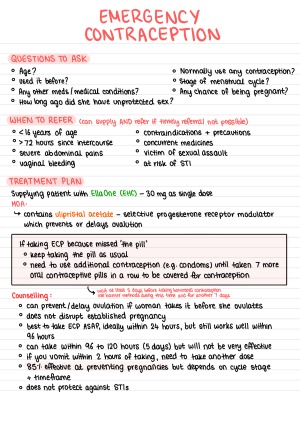 EMERGENCY
CONTRACEPTION
QUESTIONS TO ASK
Age?
Used it before?
Any other meds/medical conditions?
How long ago did she have unprotected sex?
Normally use any contraception?
Stage of menstrual cycle?
Any chance of being pregnant?
WHEN TO REFER (can supply AND refer if timely referral not possible)
< 16 years of age
> 72 hours since intercourse
severe abdominal pains
vaginal bleeding
contraindications + precautions
concurrent medicines
victim of sexual assault
at risk of STI
TREATMENT PLAN
Supplying patient with EllaOne (EHC) - 30 mg as single dose
MOA:
contains ulipristal acetate - selective progesterone receptor modulator
which prevents or delays ovulation
If taking ECP because missed 'the pill'
keep taking the pill as usual
need to use additional contraception (e.g. condoms) until taken 7 more
oral contraceptive pills in a row to be covered for contraception
wait at least 5 days before taking hormonal contraception
use barrier methods during this time and for another 7 days
Counselling:
can prevent/delay ovulation if woman takes it before she ovulates
does not disrupt established pregnancy
best to take ECP ASAP, ideally within 24 hours, but still works well within
96 hours
can take within 96 to 120 hours (5 days) but will not be very effective
if you vomit within 2 hours of taking, need to take another dose
85% effective at preventing pregnancies but depends on cycle stage
+ timeframe
does not protect against STIs